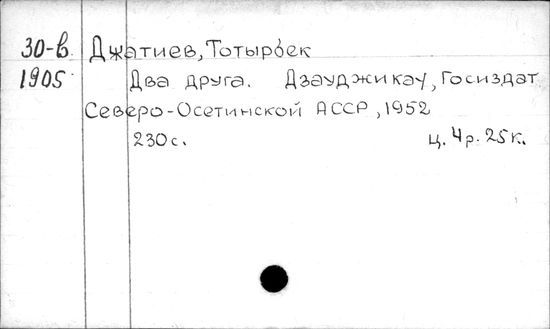 30-в Джатиев, Тотырбек
1905 Два друга. Дзауджикау, Госиздат
Северо-Осетинской АССР, 1952
230 с. ц. 4 р. 25 к.